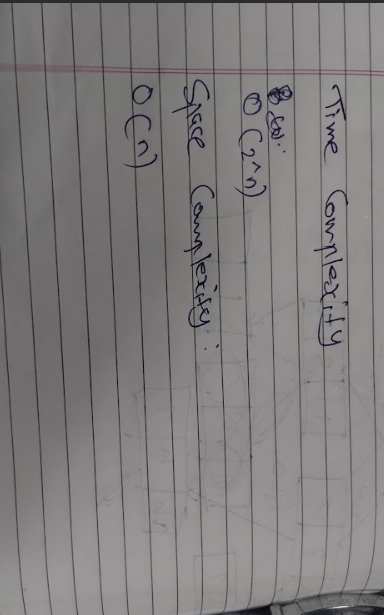 Time Complexity
O(2^n)
Space Complexity:
O(n)